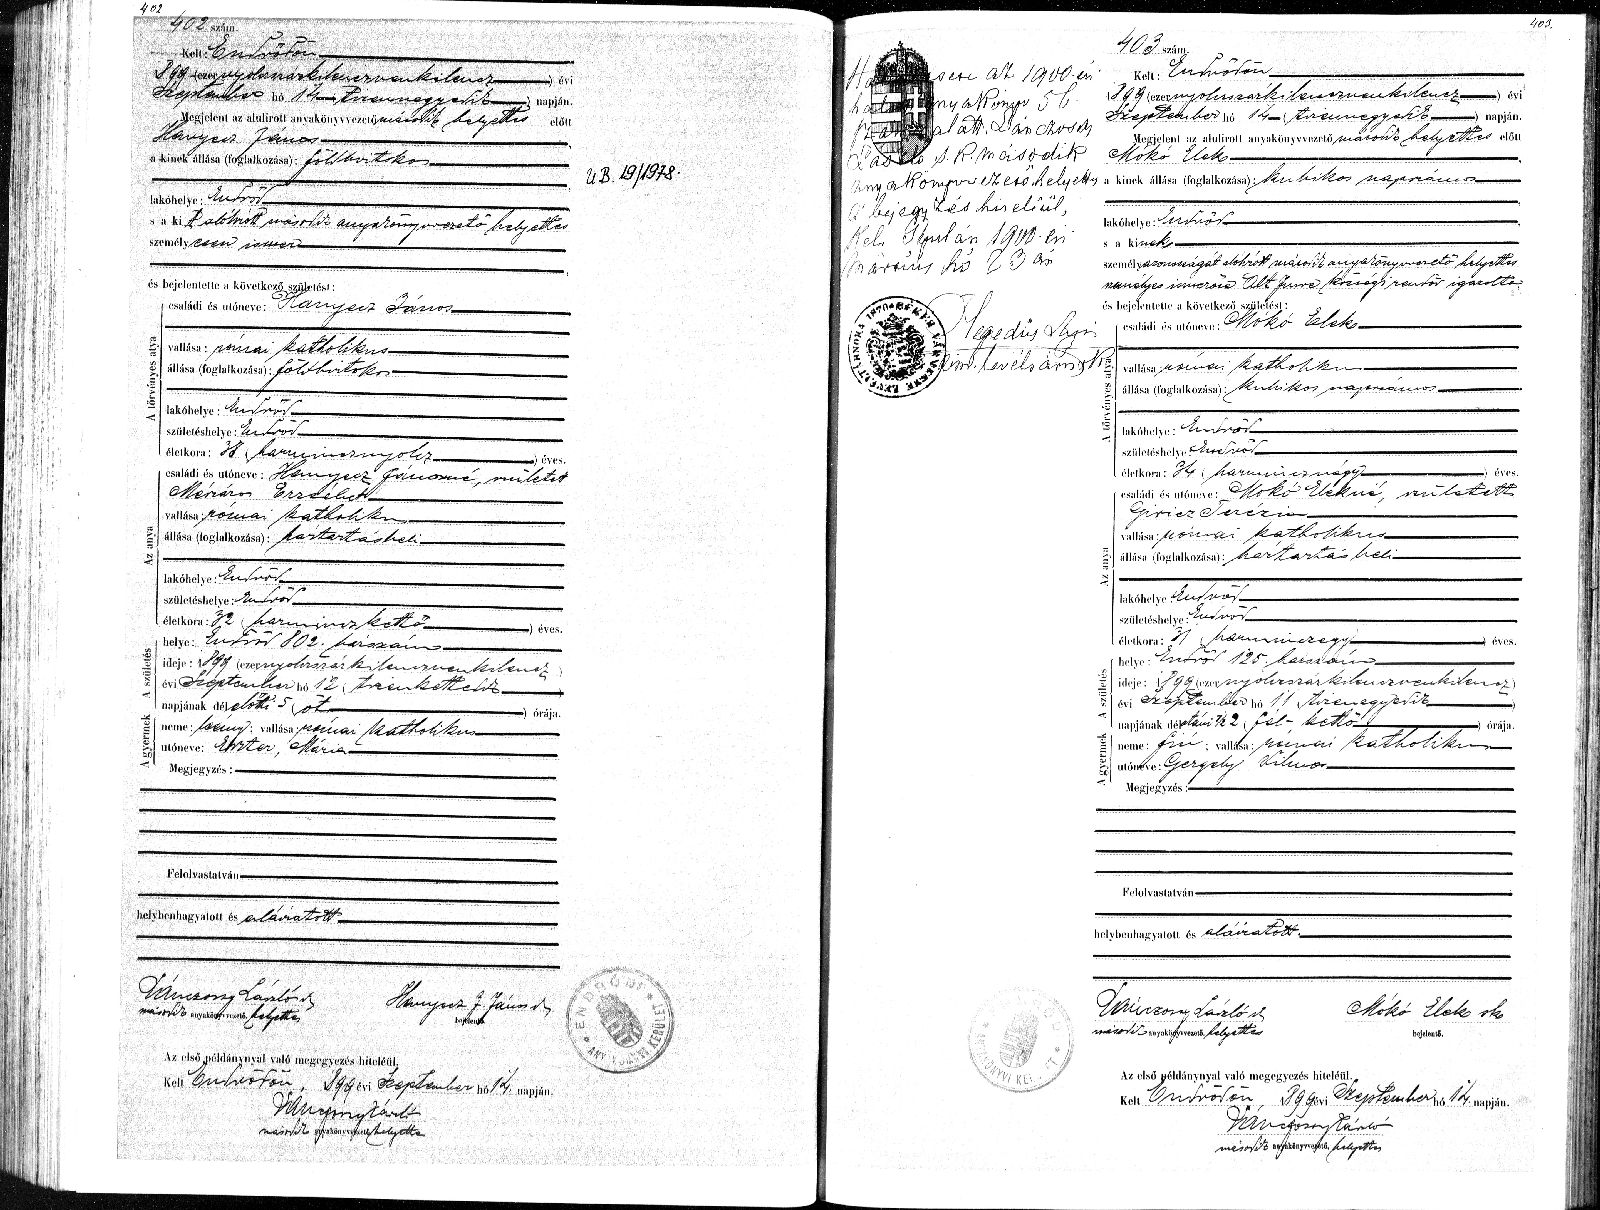 402
402 szám.
Kelt: Endrődön
899 (ezernyolcszázkilenczvenkilencz) évi
Szeptember hó 14 (tizennegyedik) napján.
Megjelent az alulirott anyakönyvvezető második helyettes előtt
Hanyecz János
a kinek állása (foglalkozása): földbirtokos
lakóhelye: Endrőd
s a kit alólirott második anyakönyvvezető helyettes
személyesen ismer
és bejelentette a következő születést:
A törvényes atya
családi és utóneve: Hanyecz János
vallása: római katholikus
állása (foglalkozása): földbirtokos
lakóhelye: Endrőd
születéshelye: Endrőd
életkora: 38 (harmincznyolcz) éves.
Az anya
családi és utóneve: Hanyecz Jánosné, született
Mészáros Erzsébet
vallása: római katholikus
állása (foglalkozása): háztartásbeli
lakóhelye: Endrőd
születéshelye: Endrőd
életkora: 32 (harminczkettő) éves.
A születés
helye: Endrőd 802. házszám
ideje: 899 (ezernyolcszázkilenczvenkilencz)
évi Szeptember hó 12 (tizenkettedik)
napjának délelőtti 5 (öt) órája.
A gyermek
neme: leány; vallása: római katholikus
utóneve: Eszter, Mária
Megjegyzés:
Felolvastatván
helybenhagyatott és aláiratott
Vánczossy László sk
második anyakönyvvezető helyettes
Hanyecz J. János sk
bejelentő.
ENDRŐDI ANYAKÖNYVI KERÜLET
Az első példánynyal való megegyezés hiteléül.
Kelt Endrődön, 899 évi Szeptember hó 14 napján.
Vánczossy László
második anyakönyvvezető helyettes
U B. 19/1978.
403.
az 1900-én
anyakönyv 56
alatt. Lánczossy
László s. k. második
anyakönyvvezető helyettes
A bejegyzés hiteléül,
Kelt Gyulán 1900-én
március hó 23 án
Hegedüs
levéltárnok
BÉKÉS VÁRMEGYE LEVÉLTÁRNOKA 1876
403 szám.
Kelt: Endrődön
899 (ezernyolcszázkilenczvenkilencz) évi
Szeptember hó 14 (tizennegyedik) napján.
Megjelent az alulirott anyakönyvvezető második helyettes előtt
Mókó Elek
a kinek állása (foglalkozása): kubikos napszámos
lakóhelye: Endrőd
s a kinek
személyazonosságát alólirott második anyakönyvvezető helyettes
személyes ismerőse Alt Imre községi rendőr igazolta
és bejelentette a következő születést:
A törvényes atya
családi és utóneve: Mókó Elek
vallása: római katholikus
állása (foglalkozása): kubikos napszámos
lakóhelye: Endrőd
születéshelye: Endrőd
életkora: 34 (harmincznégy) éves.
Az anya
családi és utóneve: Mókó Elekné, született
Giricz Terézia
vallása: római katholikus
állása (foglalkozása): háztartásbeli
lakóhelye: Endrőd
születéshelye: Endrőd
életkora: 31 (harminczegy) éves.
A születés
helye: Endrőd 125. házszám
ideje: 899 (ezernyolcszázkilenczvenkilencz)
évi Szeptember hó 11 (tizenegyedik)
napjának délutáni 1/2 2 (fél-kettő) órája.
A gyermek
neme: fiú; vallása: római katholikus
utóneve: Gergely Vilmos
Megjegyzés:
Felolvastatván
helybenhagyatott és aláiratott.
Vánczossy László sk
második anyakönyvvezető, helyettes
Mókó Elek sk
bejelentő.
Az első példánynyal való megegyezés hiteléül.
Kelt Endrődön, 899 évi Szeptember hó 14 napján.
Vánczossy László
második anyakönyvvezető, helyettes